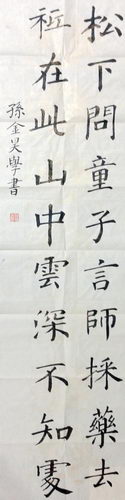 松下問童子言師採藥去
秖在此山中雲深不知處
孫金昊學書